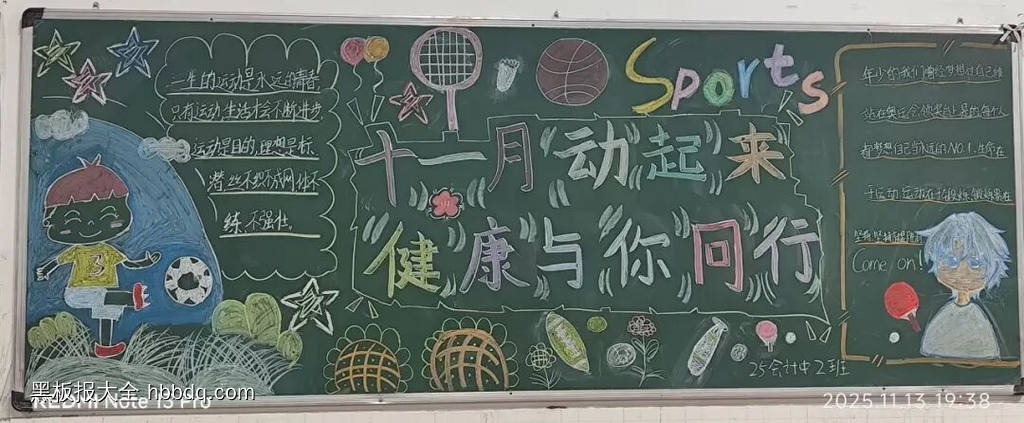 三生的运动是永远的青春
只有运动生活才会不断进步
运动是目的,理想是标
潜丝不织不成网体不
练,不强壮。
Sports
十一月"动"起"来"
"健"康"与"你"同"行"
年少的我们曾经梦想过自己能
站在奥运会领奖台上是的每个人
者梦想自己当永远的NO.1.生命在
于运动,运动在于锻炼,锻炼贵在
坚持,坚持
Come on!
25会计中2班
黑板报大全 hbbdq.com
REDMI Note 13 Pro
2025.11.13 19:38